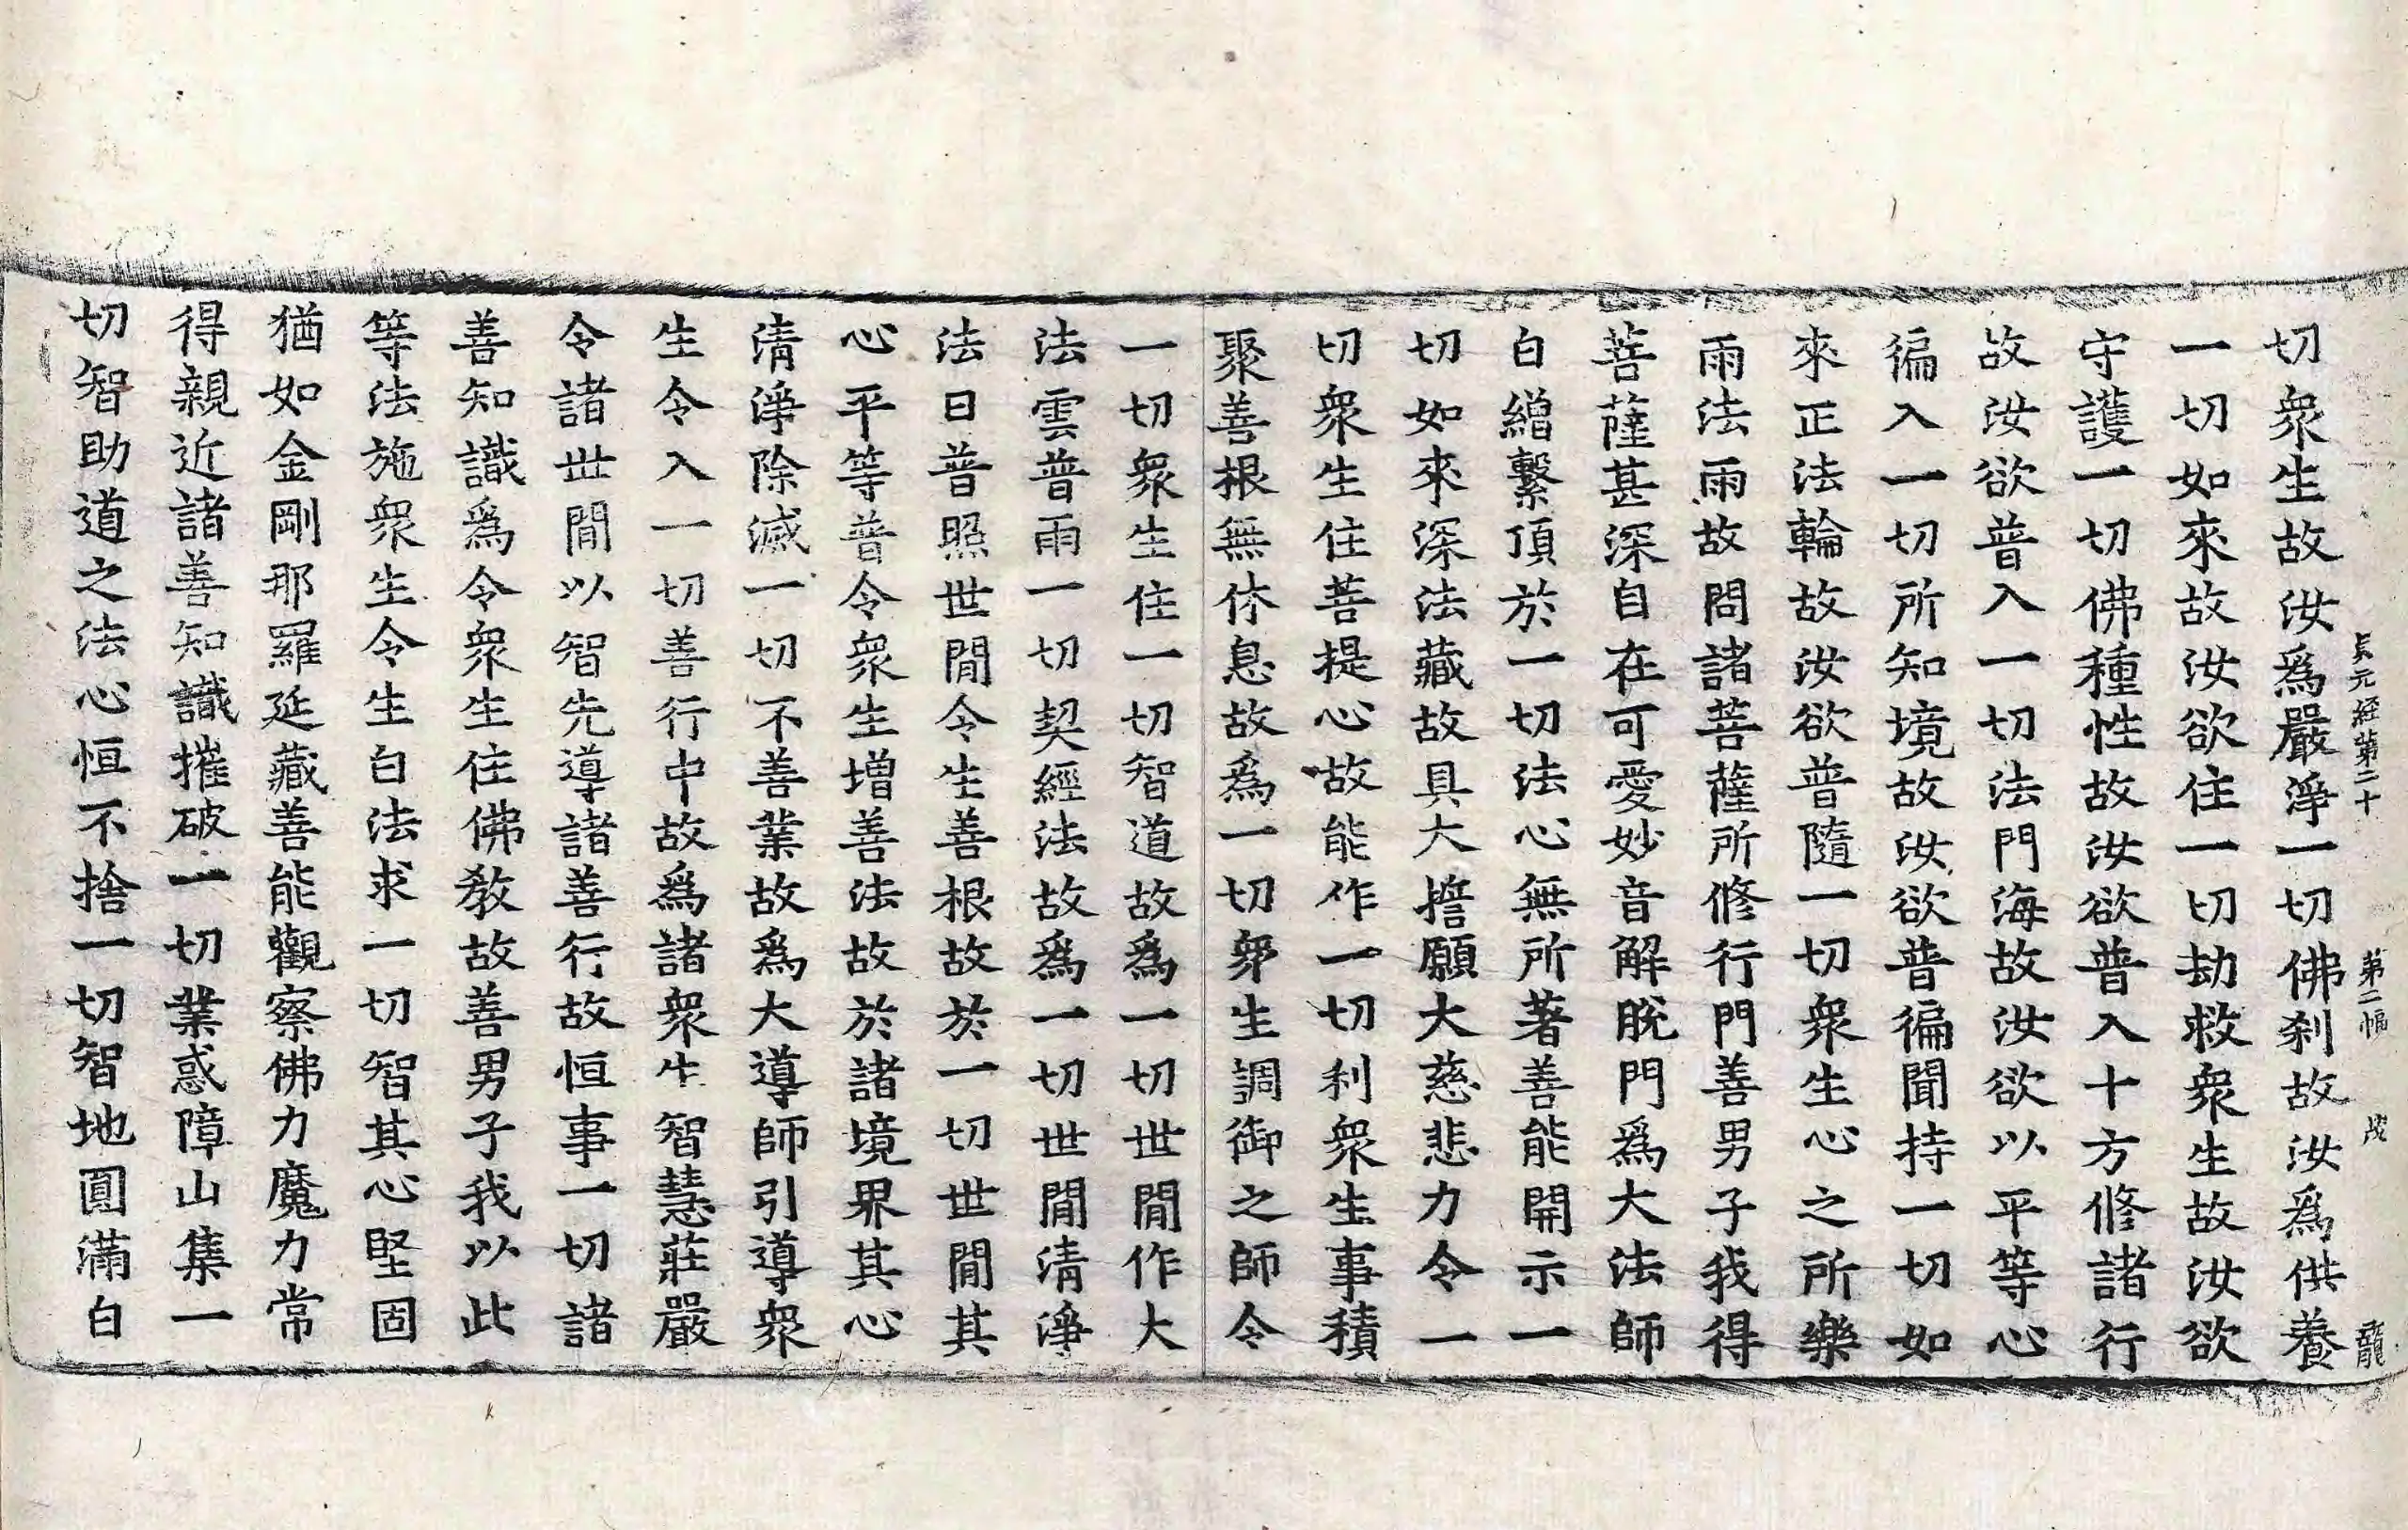 貞元經第二十　第二幅　戊　龍
切衆生故汝爲嚴淨一切佛刹故汝爲供養
一切如來故汝欲住一切劫救衆生故汝欲
守護一切佛種性故汝欲普入十方修諸行
故汝欲普入一切法門海故汝欲以平等心
徧入一切所知境故汝欲普徧聞持一切如
來正法輪故汝欲普隨一切衆生心之所樂
雨法雨故問諸菩薩所修行門善男子我得
菩薩甚深自在可愛妙音解脫門爲大法師
白繒繫頂於一切法心無所著善能開示一
切如來深法藏故具大誓願大慈悲力令一
切衆生住菩提心故能作一切利衆生事積
聚善根無休息故爲一切衆生調御之師令
一切衆生住一切智道故爲一切世閒作大
法雲普雨一切契經法故爲一切世閒清淨
法日普照世閒令生善根故於一切世閒其
心平等普令衆生增善法故於諸境界其心
清淨除滅一切不善業故爲大導師引導衆
生令入一切善行中故爲諸衆生智慧莊嚴
令諸世閒以智先導諸善行故恒事一切諸
善知識爲令衆生住佛教故善男子我以此
等法施衆生令生白法求一切智其心堅固
猶如金剛那羅延藏善能觀察佛力魔力常
得親近諸善知識摧破一切業惑障山集一
切智助道之法心恒不捨一切智地圓滿白